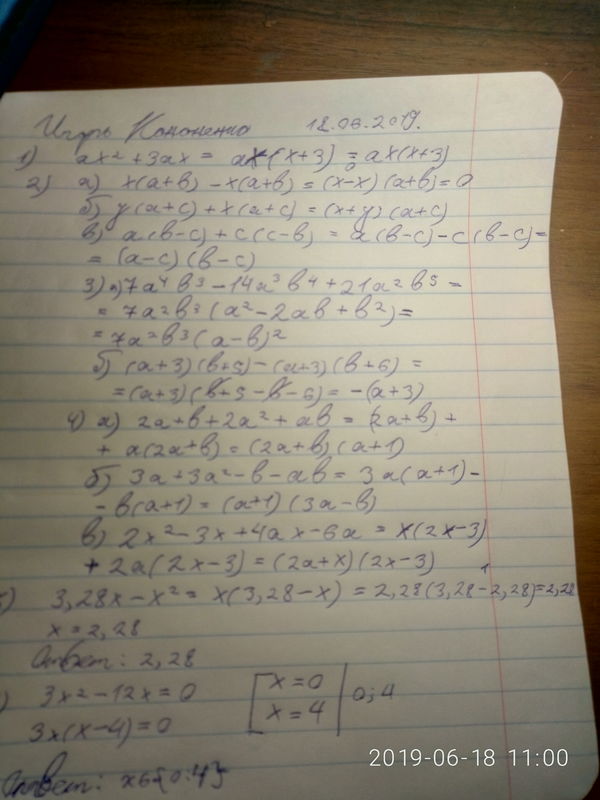 Игорь Кононенко 18.06.2019.
1) ax² + 3ax = ax(x+3) = ax(x+3)
2) а) x(a+b) - x(a+b) = (x-x)(a+b) = 0
б) y(a+c) + x(a+c) = (x+y)(a+c)
в) a(b-c) + c(c-b) = a(b-c) - c(b-c) =
= (a-c)(b-c)
3) а) 7a⁴b³ - 14a³b⁴ + 21a²b⁵ =
= 7a²b³(a² - 2ab + b²) =
= 7a²b³(a-b)²
б) (a+3)(b+5) - (a+3)(b+6) =
= (a+3)(b+5-b-6) = -(a+3)
4) а) 2a+b+2a²+ab = (2a+b) +
+ a(2a+b) = (2a+b)(a+1)
б) 3a+3a²-b-ab = 3a(a+1) -
- b(a+1) = (a+1)(3a-b)
в) 2x²-3x+4ax-6a = x(2x-3)
+ 2a(2x-3) = (2a+x)(2x-3)
) 3,28x - x² = x(3,28-x) = 2,28(3,28-2,28) = 2,28
x = 2,28
Ответ: 2,28
) 3x²-12x=0 [x=0 0;4
3x(x-4)=0 x=4
Ответ: x∈{0;4}
2019-06-18 11:00